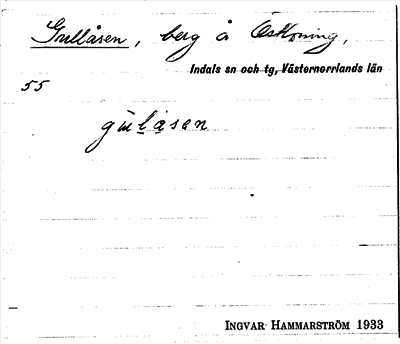 Gullåsen, berg å Östloning,
Indals sn och tg, Västernorrlands län
55
gulåsen
INGVAR HAMMARSTRÖM 1933